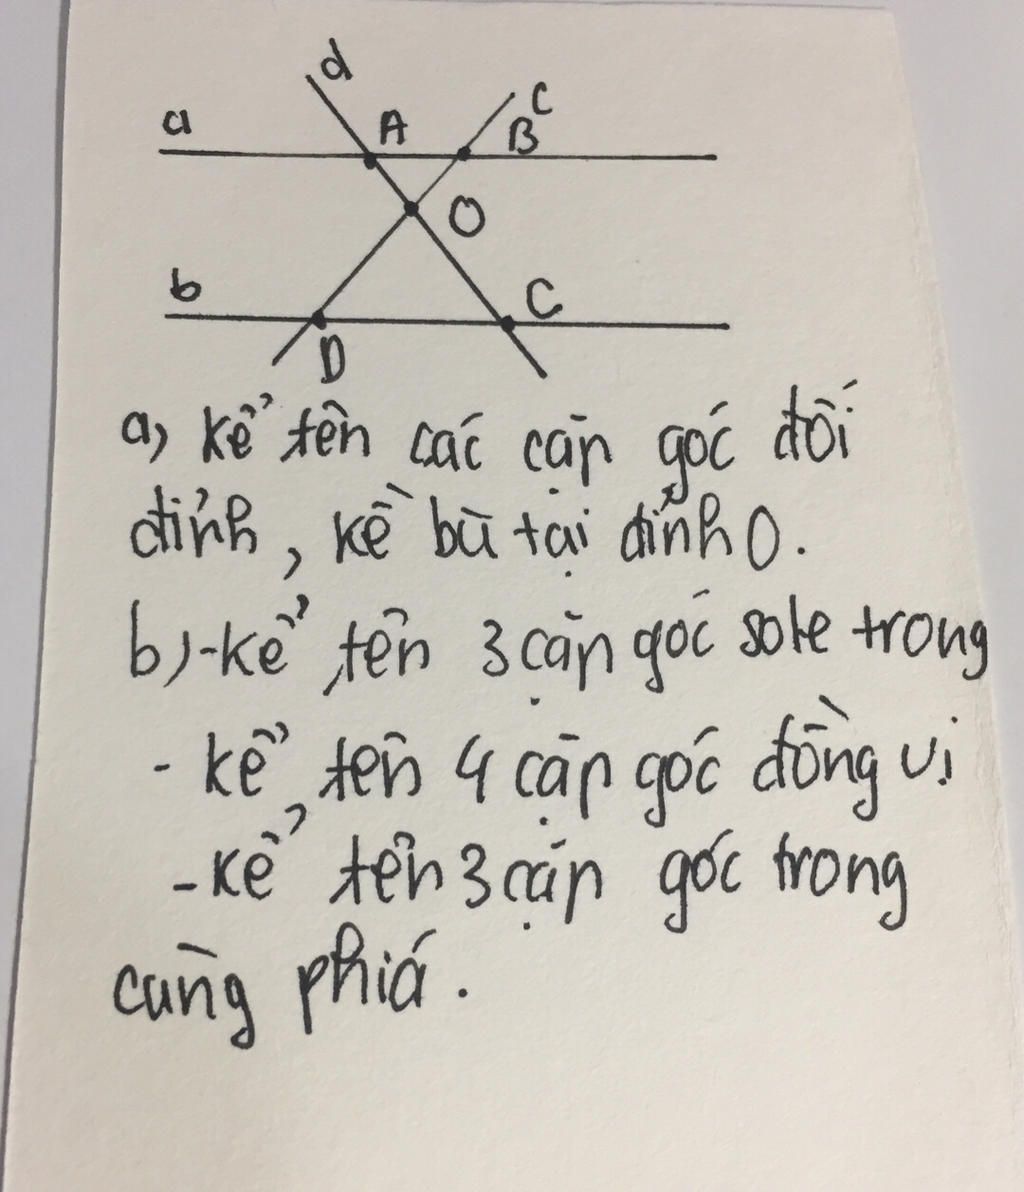 d
c
a
A
B
O
b
C
D
a, kể tên các cặp góc đối
đỉnh, kề bù tại đỉnh O.
b) - kể tên 3 cặp góc sole trong
- kể tên 4 cặp góc đồng vị
- kể tên 3 cặp góc trong
cùng phiá.